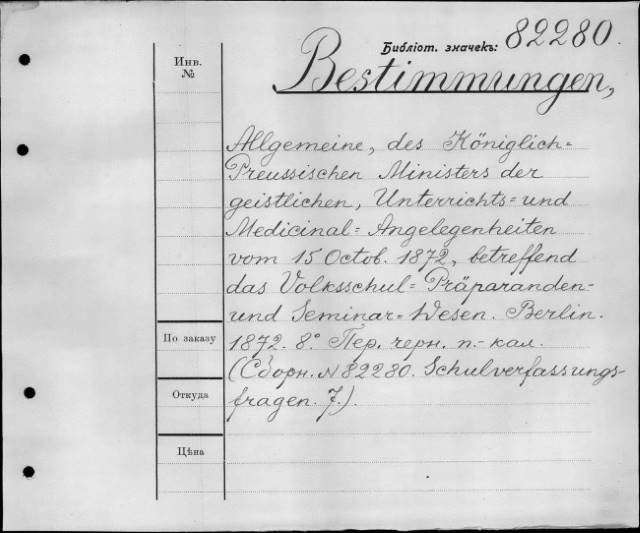 Библіот. значекъ: 82280.
Инв. №
Bestimmungen,
Allgemeine, des Königlich=
Preussischen Ministers der
geistlichen, Unterrichts= und
Medicinal= Angelegenheiten
vom 15 Octob. 1872, betreffend
das Volksschul= Präparanden-
und Seminar= Wesen. Berlin.
По заказу
1872. 8°. Пер. черн. п.- кал.
(Сборн. № 82280. Schulverfassungs-
Откуда
fragen. 7.).
Цѣна